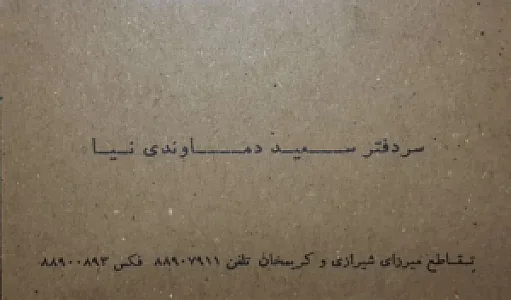 سردفتر سعید دماوندی نیا
تقاطع میرزای شیرازی و کریمخان تلفن ۸۸۹۰۷۹۱۱ فکس ۸۸۹۰۰۸۹۳